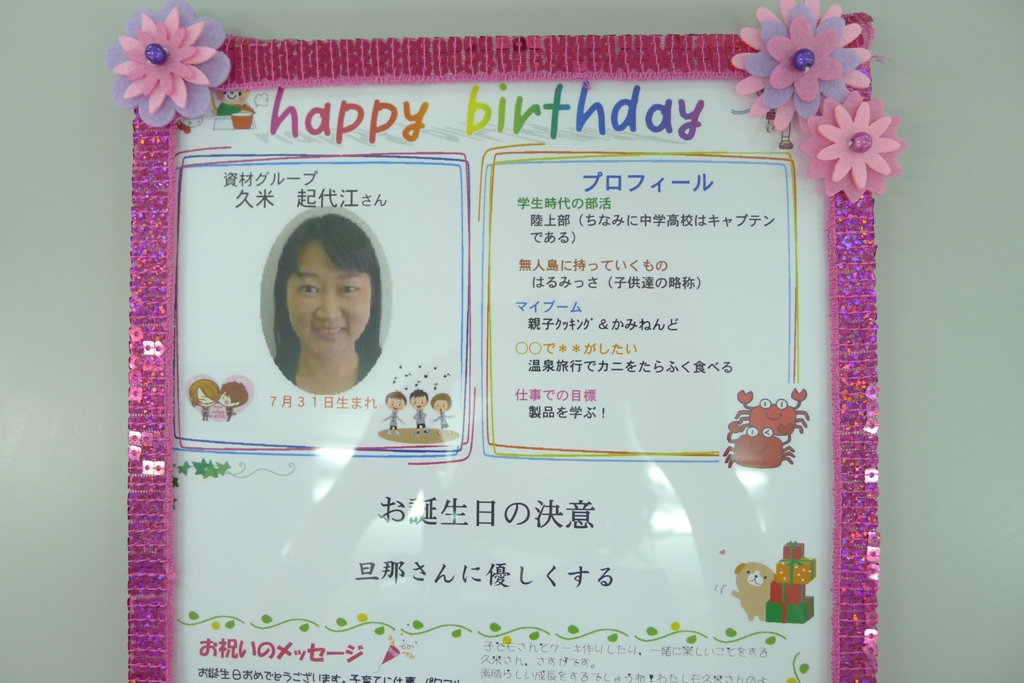 happy birthday
資材グループ
久米 起代江さん
7月31日生まれ
プロフィール
学生時代の部活
陸上部（ちなみに中学高校はキャプテン
である）
無人島に持っていくもの
はるみっさ（子供達の略称）
マイブーム
親子ｸｯｷﾝｸﾞ＆かみねんど
〇〇で＊＊がしたい
温泉旅行でカニをたらふく食べる
仕事での目標
製品を学ぶ！
お誕生日の決意
旦那さんに優しくする
お祝いのメッセージ
お誕生日おめでとうございます。子育てに仕事、パワフル
子どもさんとケーキ作りしたり、一緒に楽しいことをする
久米さん、さすがです。
素晴らしい成長をするでしょうね！わたしも久米さんのよ